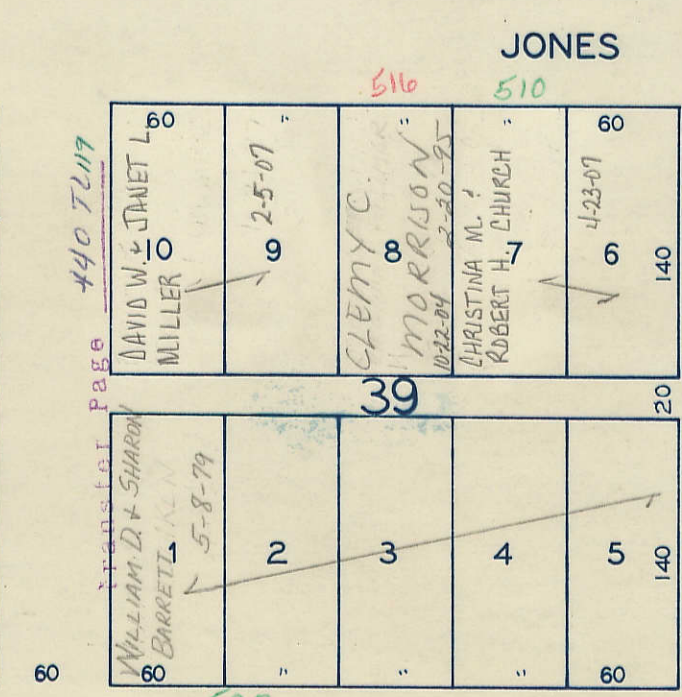 JONES
516 510
440 TL119
Transfer Page
60 " " " 60
DAVID W. & JANET L.
MILLER
10
2-5-07
9
CLEMY C.
MORRISON
10-22-04 2-20-95
8
CHRISTINA M. &
ROBERT H. CHURCH
7
4-23-07
6
140
39
20
WILLIAM D. & SHARON
BARRETT
5-8-79
1
2
3
4
5
140
60
60 " " " 60